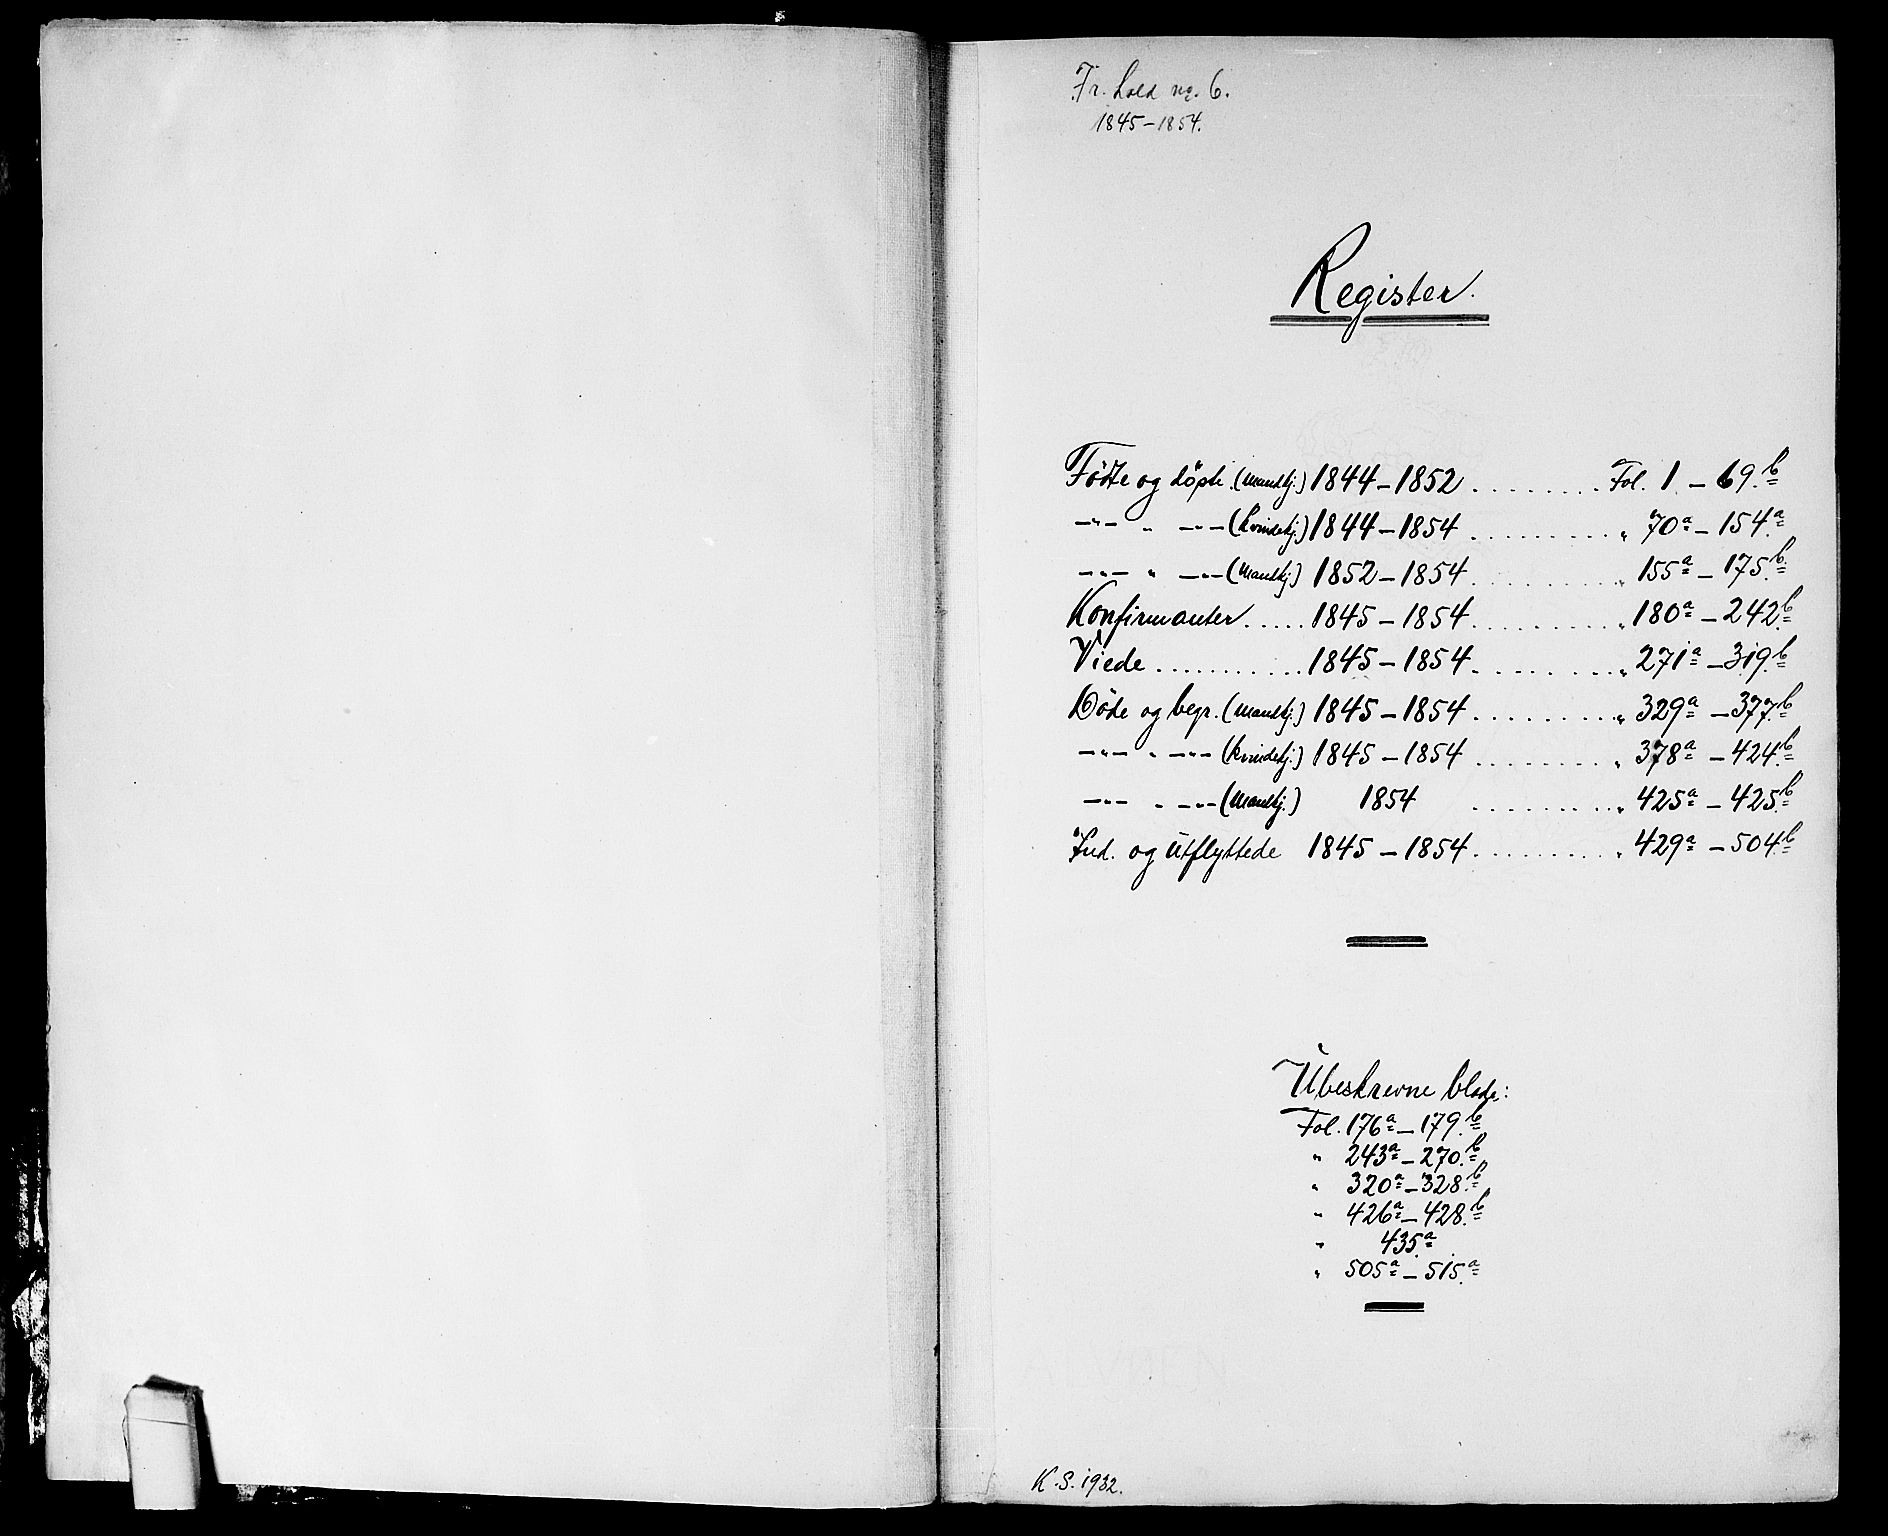 Fr. hald nr. 6.
1845-1854.
Register.
Födte og döpte. (Mandkj.) 1844-1852 ........ Fol. 1. - 69.b
-"- " -"- (Kvindekj.) 1844-1854 ........ " 70a - 154.a
-"- " -"- (Mandkj.) 1852-1854 ........ " 155a - 175.b
Konfirmanter ..... 1845-1854 ........ " 180a - 242.b
Viede ........... 1845-1854 ........ " 271a - 319.b
Döde og begr. (Mandkj.) 1845-1854 ........ " 329a - 377.b
-"- " -"- (Kvindekj.) 1845-1854 ........ " 378a - 424.b
-"- " -"- (Mandkj.) 1854 ........ " 425a - 425.b
Ind. og utflyttede 1845-1854 ........ " 429a - 504.b
Ubeskrevne blade:
Fol. 176a - 179.b
" 243a - 270.b
" 320a - 328.b
" 426a - 428.b
" 435.a
" 505a - 515.a
K.S. 1932.